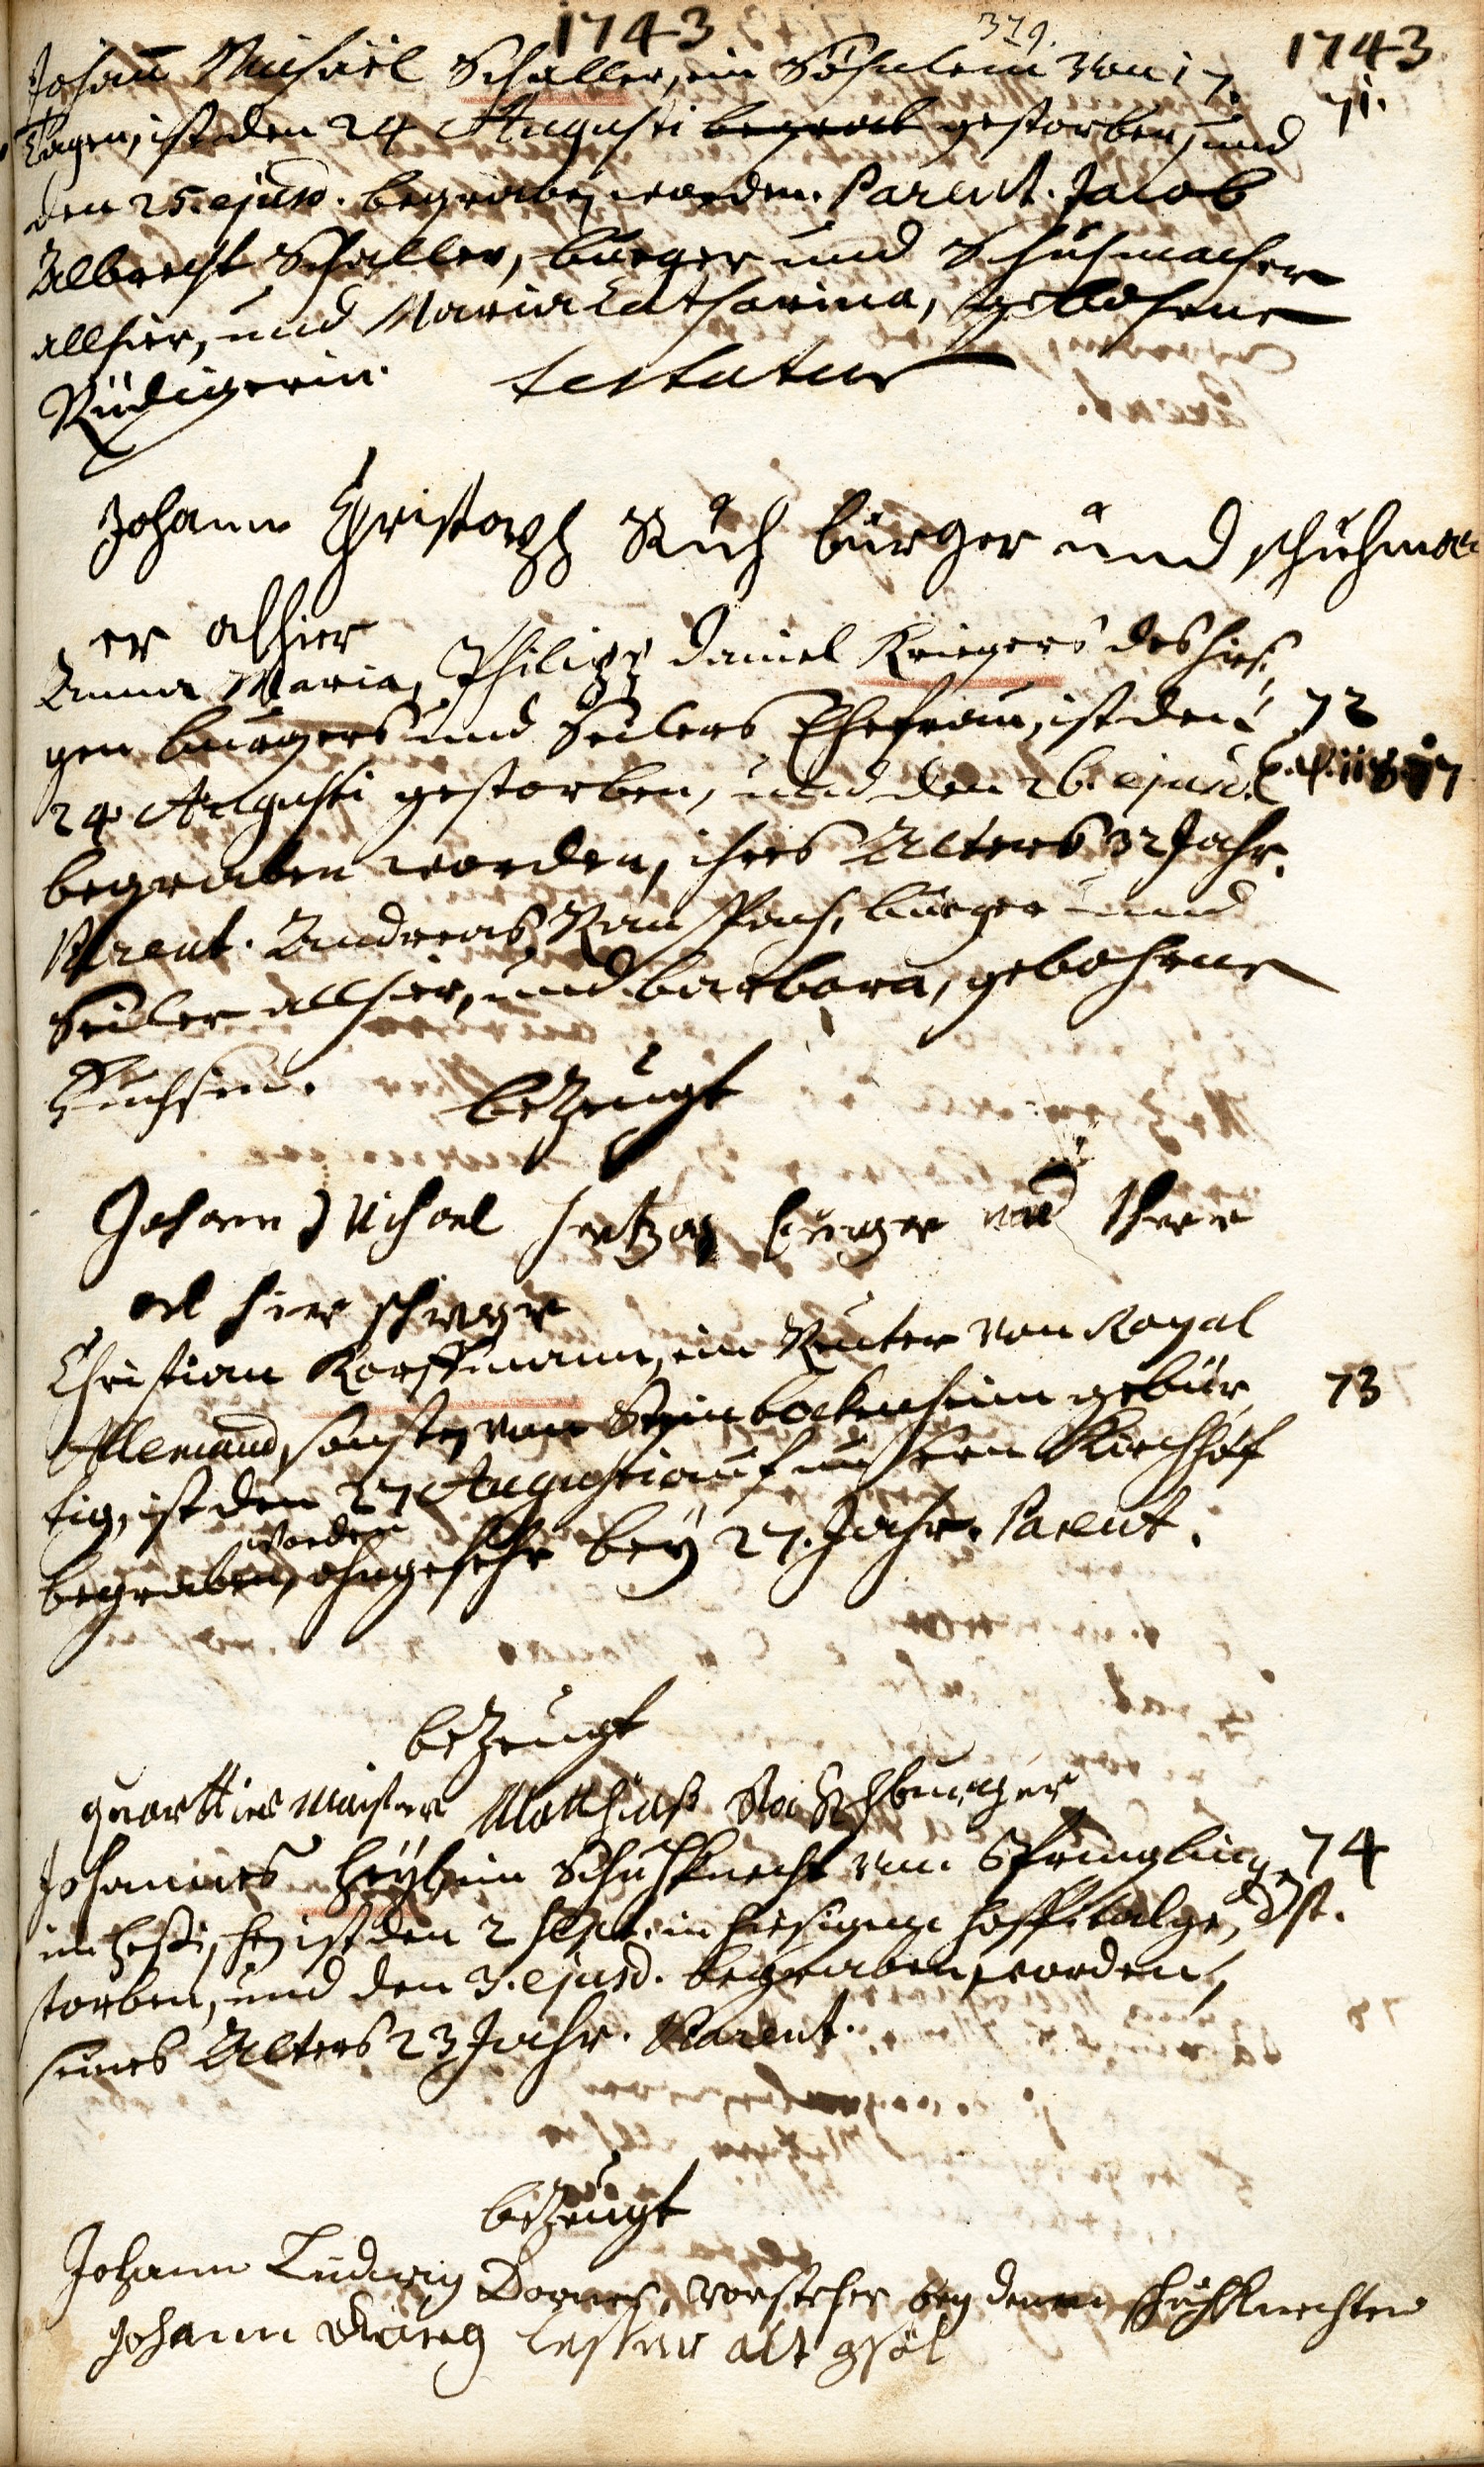 1743 379. 1743
Johann Michäel Schaller, ein Söhnlein von 17. 71.
Tagen, ist den 24 Augusti begrab gestorben, und
den 25. ejusd. begraben worden. Parent. Jacob
Albrecht Schaller, burger und Schuhmacher
allhier, und Maria Catharina, gebohrne
Rüdigerin. testatur
Johann Christoph Ruch bürger und schuhmach
er alhier
Anna Maria, Philipp Daniel Kriegers des hiesi
gen burgers und Seilers Ehefrau, ist den 72
24. Augusti gestorben, und den 26. ejusd.
begraben worden, ihres Alters 32 Jahr.
Parent. Andreas, burger und
Seiler allhier, und Barbara, gebohrne
bezeugt
Johann Michael Hertzog burger und
al hier schwager
Christian Korffmann, ein Reuter von Royal
Allemand, sonsten von Steinbockenheim gebür 73
tig, ist den 27 Augusti auf unsern Kirchhof
begraben worden, ohngefehr bey 27. Jahr. Parent.
bezeugt
quarttier Maister Matthias
Johannes Heyl, ein Schuhknecht von Sprendlingen 74
im Hessischen ist den 2 Sept. in hiesigem Hospital ge
storben, und den 3. ejusd. begraben worden,
seines Alters 23 Jahr. Parent.
bezeugt
Johann Ludwig Dorner, Vorsteher bey denen schuhknechten
Johann Georg alt gsöl